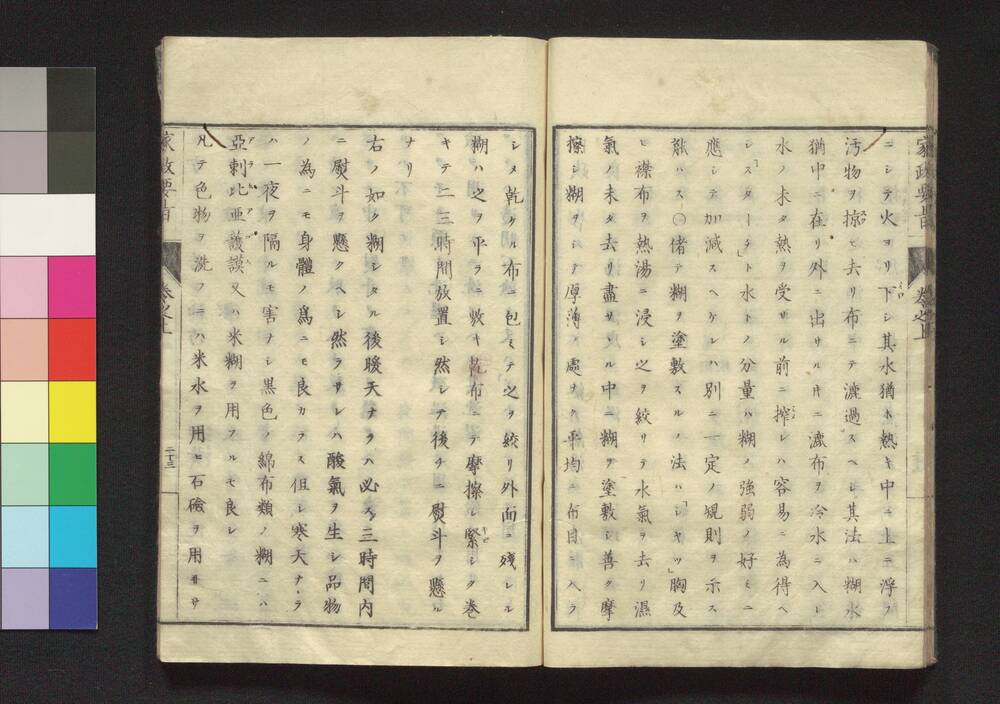 家政要旨 卷之上
ニシテ火ヨリ下シ其水猶ホ熱キ中ニ上ニ浮フ
汚物ヲ掠ヒ去リ布ニテ漉過スヘシ其法ハ糊水
猶中ニ在リ外ニ出サル片ニ漉布ヲ冷水ニ入レ
水ノ未タ熱ヲ受サル前ニ搾レハ容易ニ為得ヘ
シ「スターチ」ト水トノ分量ハ糊ノ強弱ノ好ミニ
應シテ加減スヘケレハ別ニ一定ノ規則ヲ示ス
能ハス〇偖テ糊ヲ塗敷スルノ法ハ「シヤツ」胸及
ヒ襟布ヲ熱湯ニ浸シ之ヲ絞リテ水氣ヲ去リ濕
氣ノ未タ去リ盡サヽル中ニ糊ヲ塗敷シ善ク摩
擦シ糊ヲシテ厚薄ノ處ナク平均ニ布目ニ入ラ
シメ乾タル布ニ包ミテ之ヲ絞リ外面ニ殘レル
糊ハ之ヲ平ラニ敷キ乾布ニテ摩擦シ緊シク卷
キテ二三時間放置シ然シテ後チニ熨斗ヲ懸ル
ナリ
右ノ如ク糊シタル後暖天ナラハ必ス三時間内
ニ熨斗ヲ懸クヘシ然ラサレハ酸氣ヲ生シ品物
ノ為ニモ身體ノ為ニモ良カラス但シ寒天ナラ
ハ一夜ヲ隔ルモ害ナシ黒色ノ綿布類ノ糊ニハ
亞剌比亞護謨又ハ米糊ヲ用フルモ良シ
凡テ色物ヲ洗フニハ米水ヲ用ヒ石鹼ヲ用ヰサ
家政要旨 卷之上 二十三